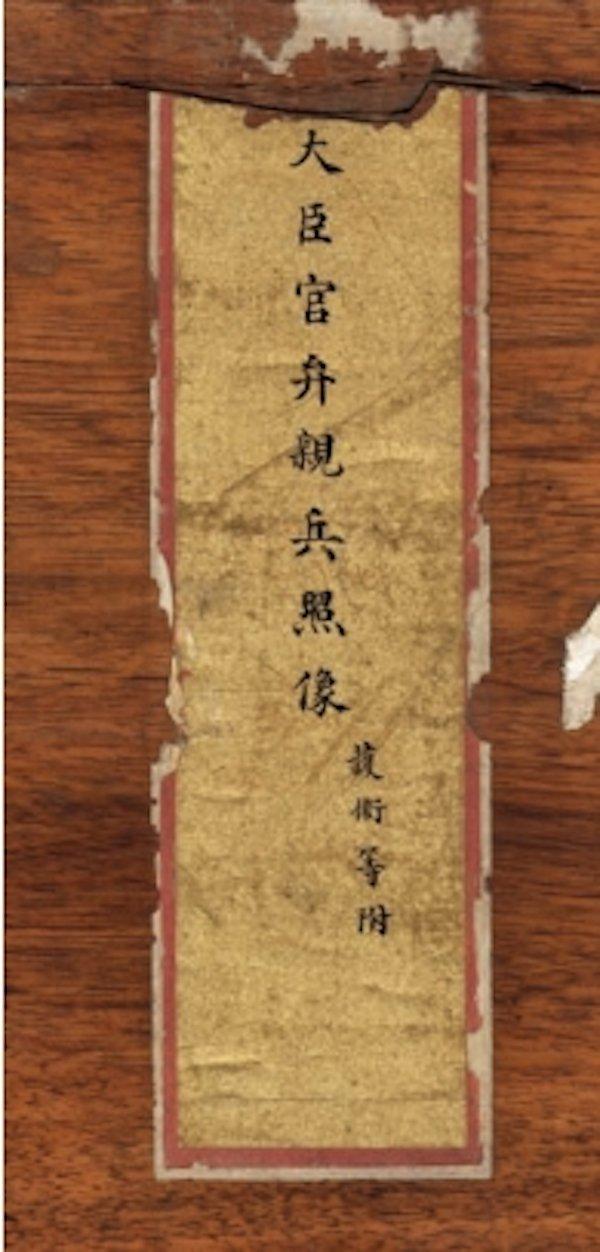 大臣官弁親兵照像
護衛等附